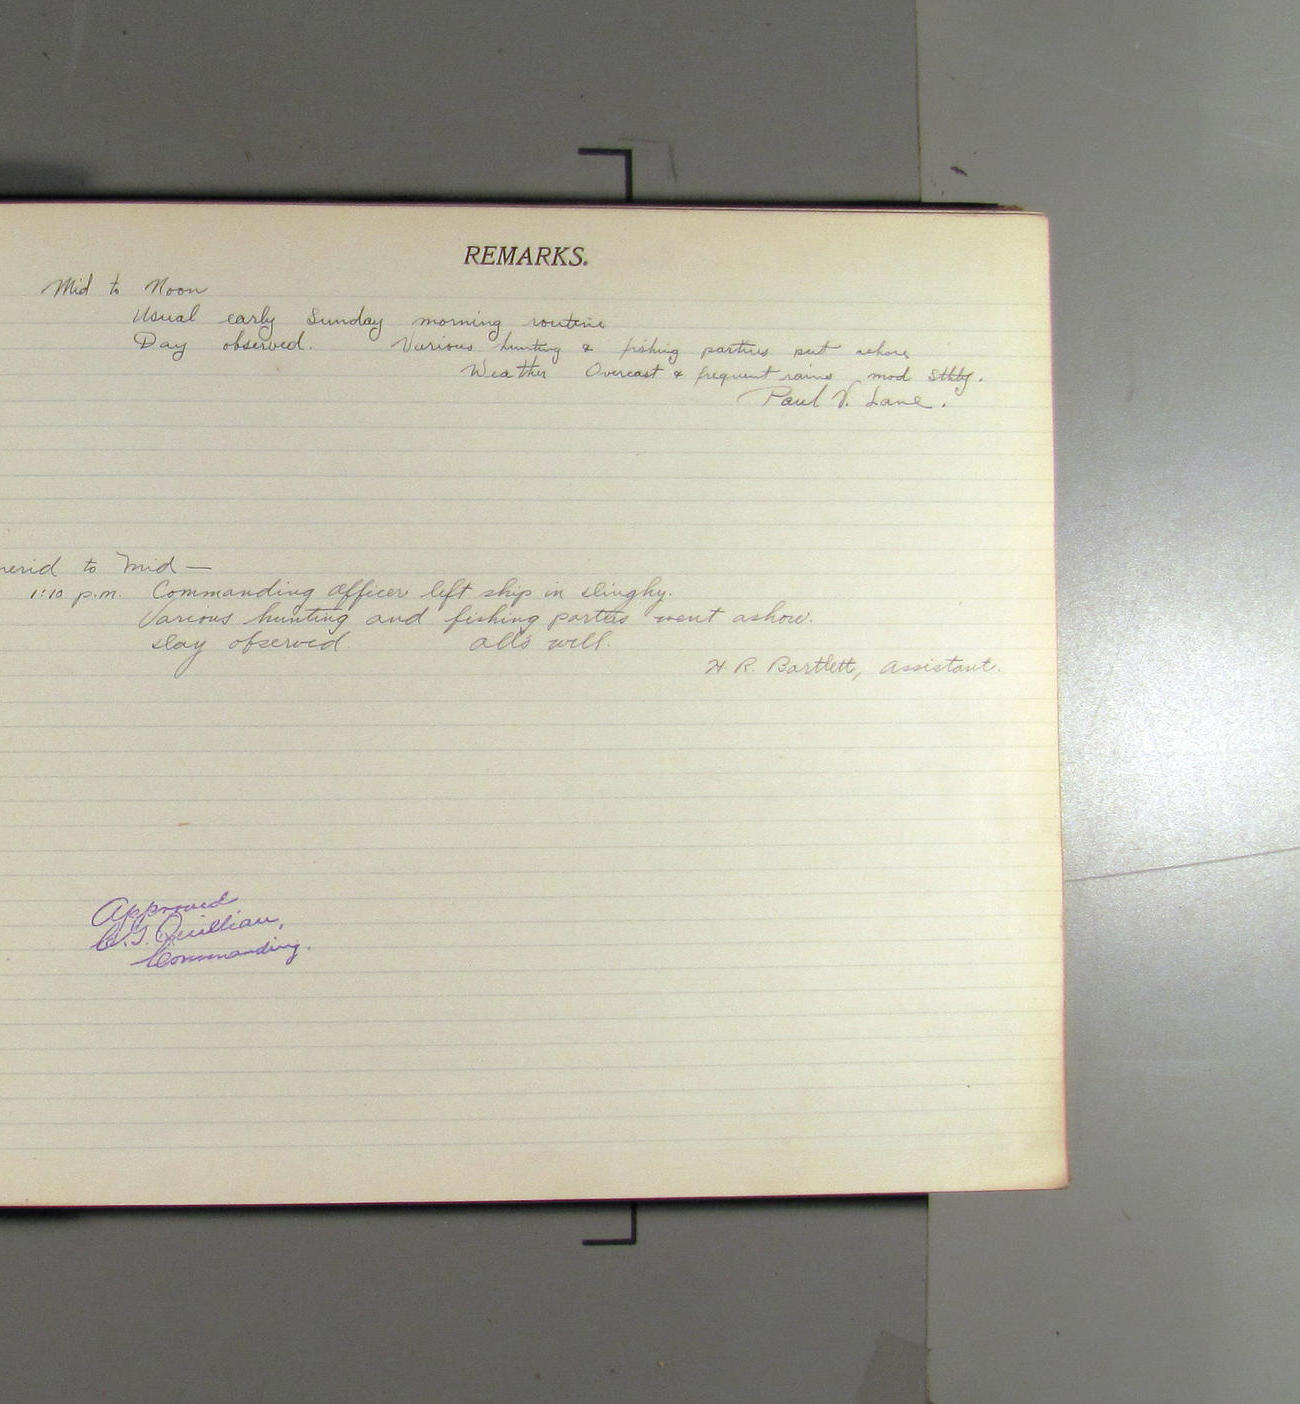 REMARKS.
Mid to Noon
Usual early Sunday morning routine
Day observed. Various hunting & fishing parties put ashore
Weather Overcast & frequent rains mod Sthly.
Paul V. Lane.
merid to Mid —
1:10 p.m. Commanding officer left ship in dinghy.
Various hunting and fishing parties went ashore.
day observed. all's well.
H. R. Bartlett, Assistant.
Approved
Quillian,
Commanding.